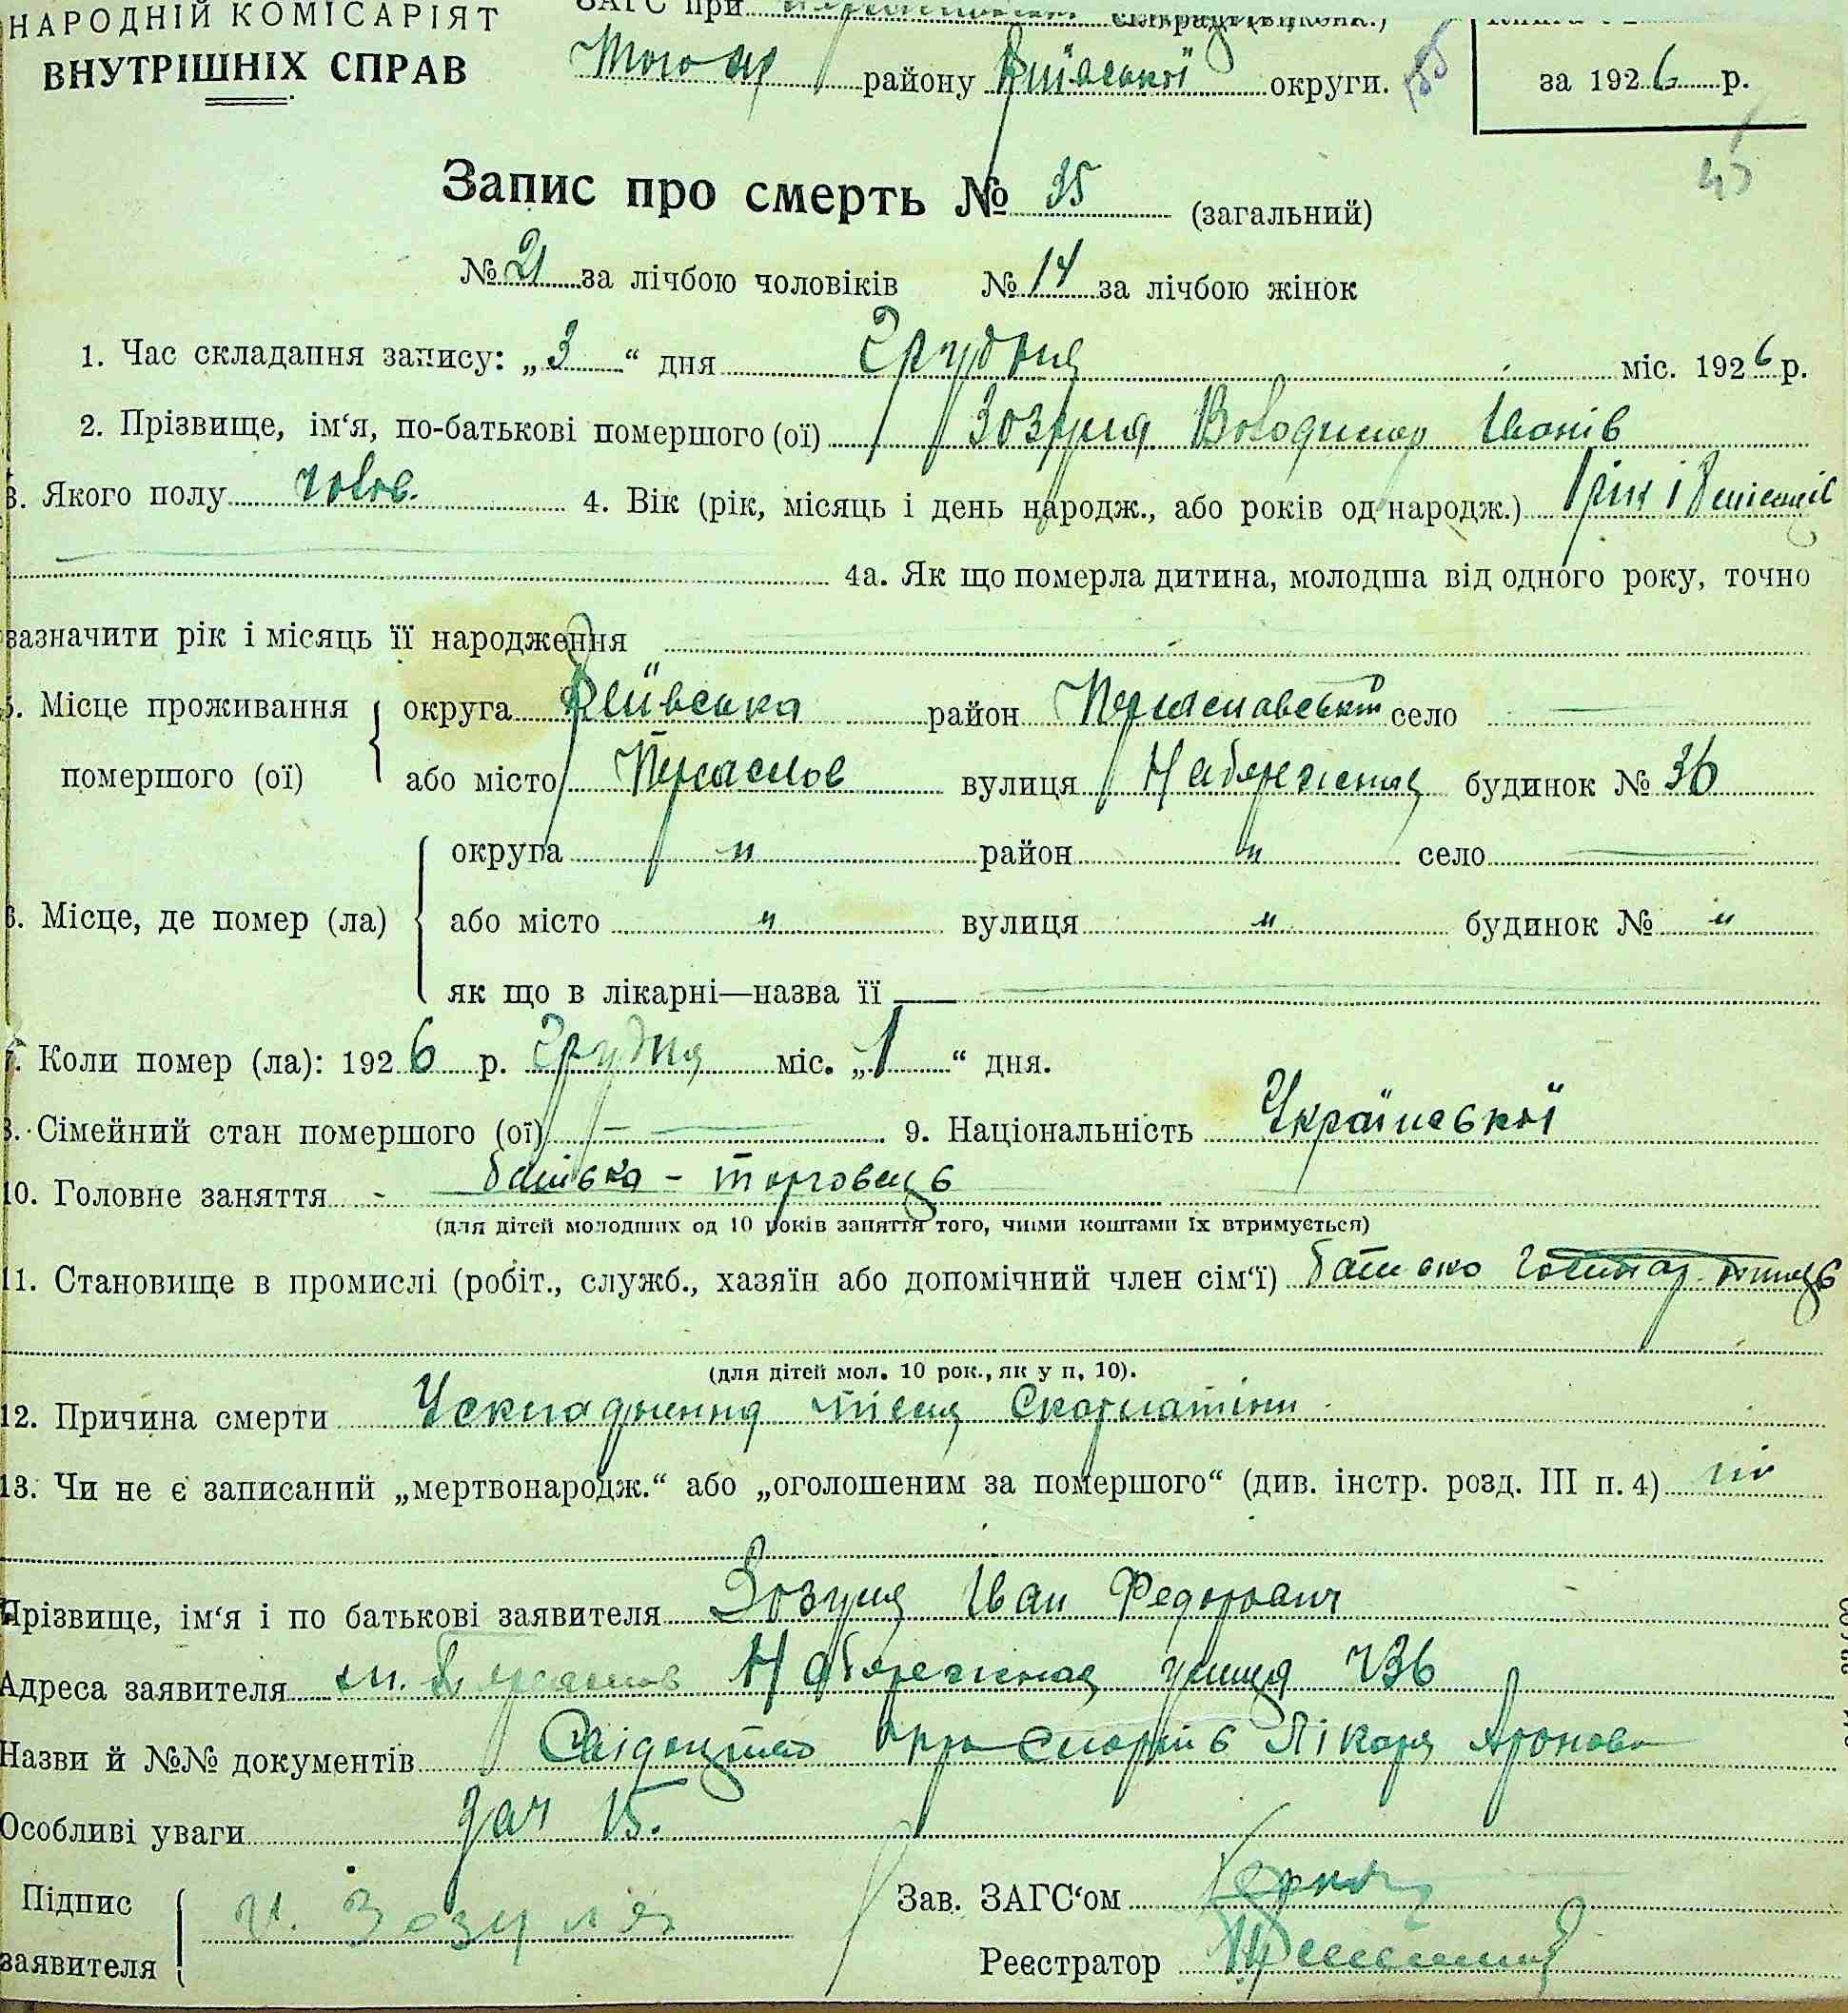 НАРОДНІЙ КОМІСАРІЯТ
ВНУТРІШНІХ СПРАВ
ЗАГС при
Того ж району Київської округи.
за 1926 р.
Запис про смерть № 35 (загальний)
№ 21 за лічбою чоловіків № 14 за лічбою жінок
1. Час складання запису: „3“ дня Грудня міс. 1926 р.
2. Прізвище, ім‘я, по-батькові помершого (ої) Зозуля Володимир Іванів
3. Якого полу чолов. 4. Вік (рік, місяць і день народж., або років од народж.) 1 рік і 8 місяців
4а. Як що померла дитина, молодша від одного року, точно
зазначити рік і місяць її народження
5. Місце проживання помершого (ої)
округа Київська район Переяславський село —
або місто Переяслов вулиця Набережна будинок № 36
6. Місце, де помер (ла)
округа " район " село —
або місто " вулиця " будинок № "
як що в лікарні—назва її —
7. Коли помер (ла): 1926 р. Грудня міс. „1“ дня.
8. Сімейний стан помершого (ої) — 9. Національність Української
10. Головне заняття - батько - торговець
(для дітей молодших од 10 років заняття того, чиїми коштами їх втримується)
11. Становище в промислі (робіт., служб., хазяїн або допомічний член сім‘ї) батько
(для дітей мол. 10 рок., як у п. 10).
12. Причина смерти Ускладнення після Скарлатіни
13. Чи не є записаний „мертвонародж.“ або „оголошеним за помершого“ (див. інстр. розд. III п. 4) ні
Прізвище, ім‘я і по батькові заявителя Зозуля Іван Федорович
Адреса заявителя м. Переяслов Набережная улиця 36
Назви й №№ документів Свідоцтво про смерть Лікаря Аронова
Особливі уваги
Підпис заявителя И. Зозуля
Зав. ЗАГС‘ом
Реєстратор